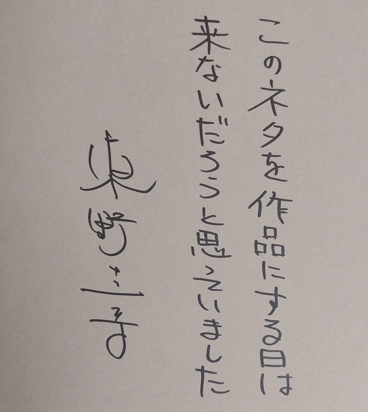 このネタを作品にする日は
来ないだろうと思っていました
東野圭吾